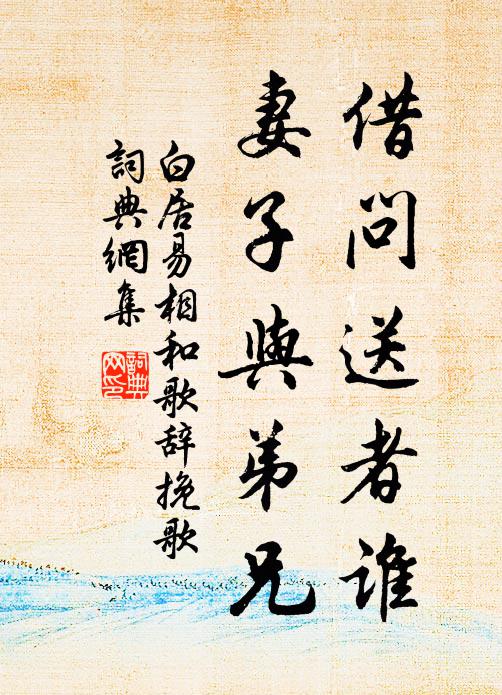 借问送者谁
妻子與弟兄
白居易相和歌辞挽歌
詞典網集
詞典网印